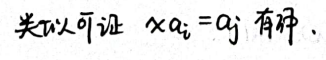 类似可证 xa_i = a_j 有解.